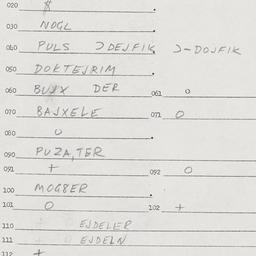 020 $
030 NOGL
040 PULS ƆDEJFIK Ɔ-DOJFIK
050 DOKTEJRIM
060 DER 061 o
070 BAJXELE 071 O
080 U
090 PUZA,TER
091 + 092 O
100 MOG8ER
101 O 102 +
110 EJDELER
111 EJDELN
112 +